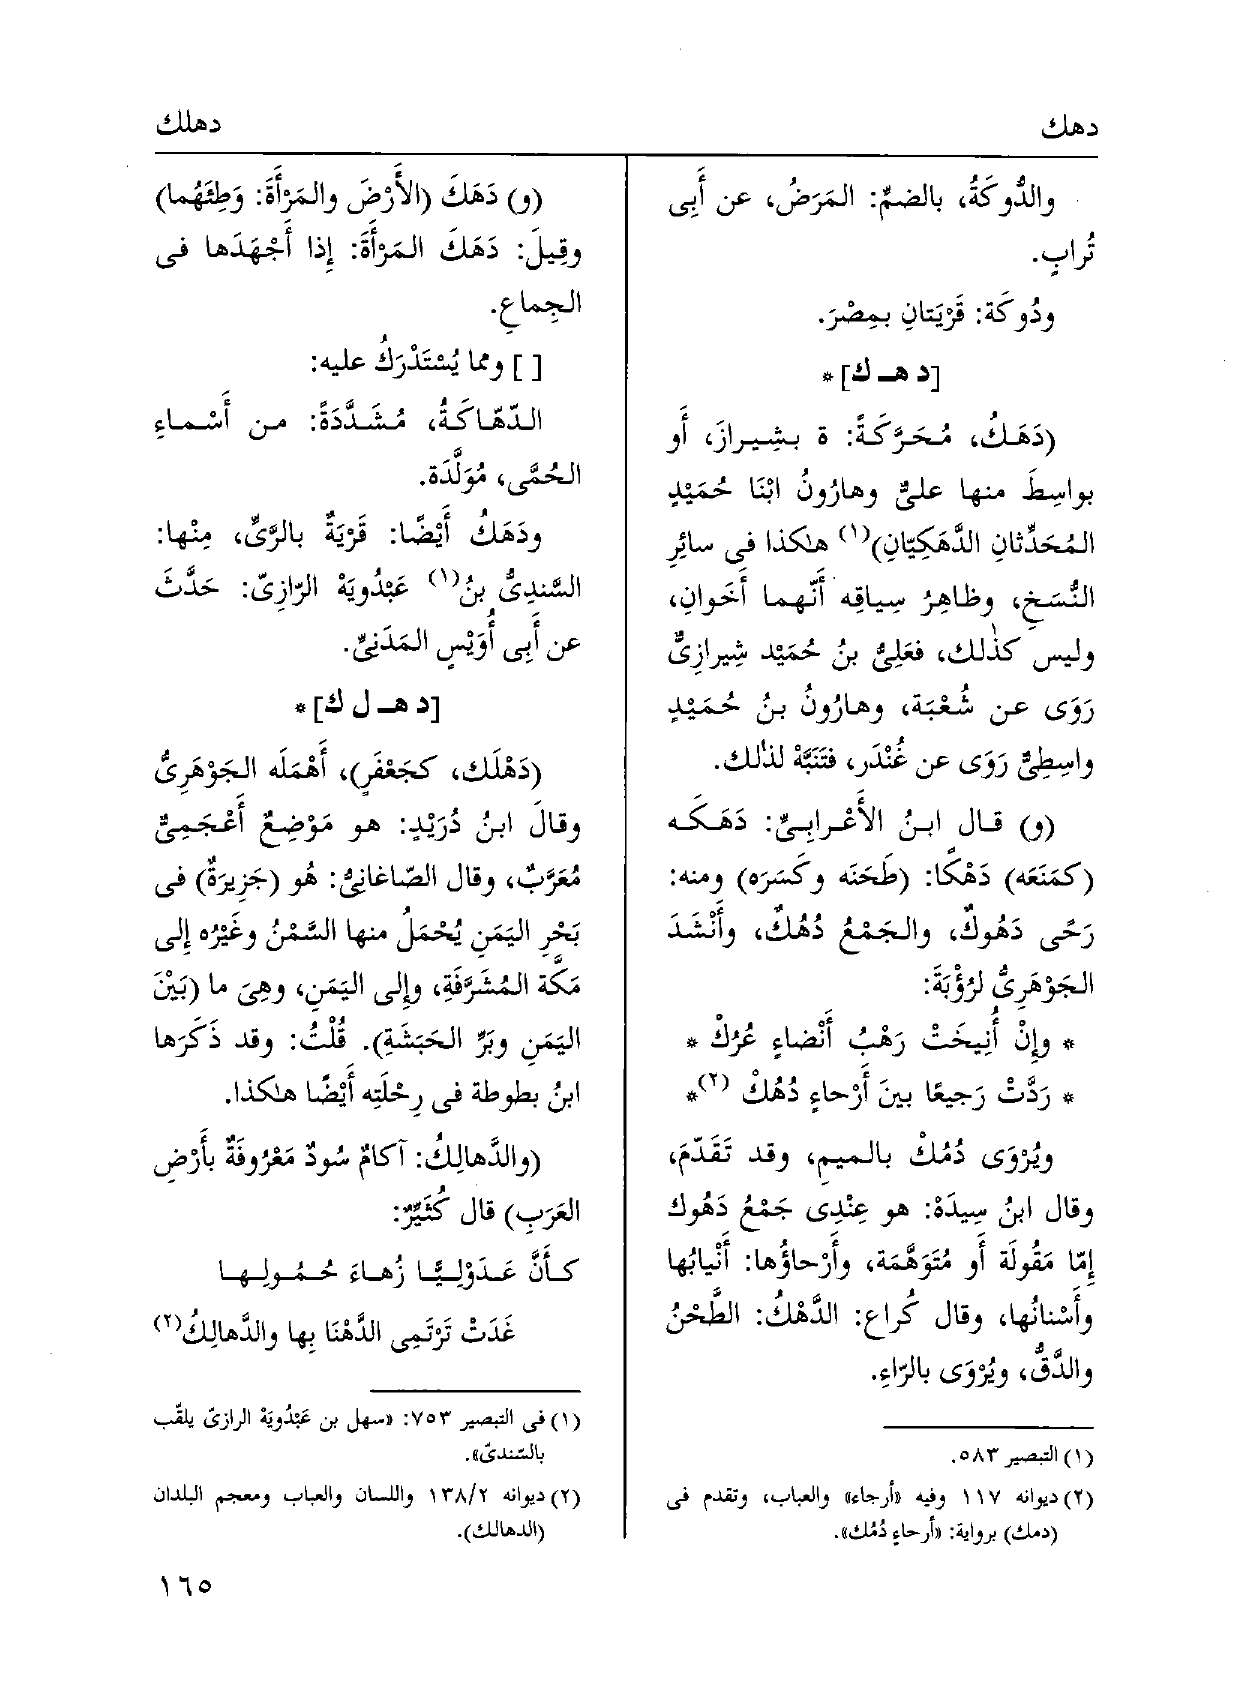 دهك
دهلك
والدُّوكَةُ، بالضمّ: المَرَضُ، عن أَبِى
تُرابٍ.
ودُوكَة: قَرْيَتانِ بمِصْرَ.
[د هـ ك] *
(دَهَكُ، مُحَرَّكَةً: ة بشِيرازَ، أَو
بواسِطَ منها علىٌّ وهارُونُ ابْنَا حُمَيْدٍ
المُحَدِّثانِ الدَّهَكِيّانِ)(١) هٰكذا فى سائِرِ
النُّسَخِ، وظاهِرُ سِياقِه أَنَّهما أَخَوانِ،
وليس كذٰلك، فعَلِىُّ بنُ حُمَيْد شِيرازِىٌّ
رَوَى عن شُعْبَة، وهارُونُ بنُ حُمَيْدٍ
واسِطِىٌّ رَوَى عن غُنْدَر، فتَنَبَّهْ لذٰلك.
(و) قال ابنُ الأَعْرابِىِّ: دَهَكَه
(كمَنَعَه) دَهْكًا: (طَحَنَه وكَسَرَه) ومنه:
رَحًى دَهُوكٌ، والجَمْعُ دُهُكٌ، وأَنْشَدَ
الجَوْهَرِىُّ لرُؤْبَةَ:
* وإِنْ أُنِيخَتْ رَهْبُ أَنْضاءٍ عُرُكْ *
* رَدَّتْ رَجِيعًا بينَ أَرْحاءٍ دُهُكْ (٢)*
ويُرْوَى دُمُكْ بالميمِ، وقد تَقَدّمَ،
وقال ابنُ سِيدَهْ: هو عِنْدِى جَمْعُ دَهُوك
إِمّا مَقُولَة أَو مُتَوَهَّمَة، وأَرْحاؤُها: أَنْيابُها
وأَسْنانُها، وقال كُراع: الدَّهْكُ: الطَّحْنُ
والدَّقُّ، ويُرْوَى بالرّاءِ.
(١) التبصير ٥٨٣.
(٢) ديوانه ١١٧ وفيه «أرجاء» والعباب، وتقدم فى
(دمك) برواية: «أرحاءٍ دُمُك».
(و) دَهَكَ (الأَرْضَ والمَرْأَةَ: وَطِئَهُما)
وقِيلَ: دَهَكَ المَرْأَةَ: إِذا أَجْهَدَها فى
الجِماعِ.
[ ] ومما يُسْتَدْرَكُ عليه:
الدَّهّاكَةُ، مُشَدَّدَةً: من أَسْماءِ
الحُمَّى، مُوَلَّدَة.
ودَهَكُ أَيْضًا: قَرْيَةٌ بالرَّىِّ، مِنْها:
السِّنْدِىُّ بنُ(١) عَبْدُويَهْ الرّازِىّ: حَدَّثَ
عن أَبِى أُوَيْسٍ المَدَنِىِّ.
[د هـ ل ك] *
(دَهْلَك، كجَعْفَرٍ)، أَهْمَلَه الجَوْهَرِىُّ
وقالَ ابنُ دُرَيْدٍ: هو مَوْضِعٌ أَعْجَمِىٌّ
مُعَرَّبٌ، وقال الصّاغانِىُّ: هُو (جَزِيرَةٌ) فى
بَحْرِ اليَمَنِ يُحْمَلُ منها السَّمْنُ وغَيْرُه إِلى
مَكَّة المُشَرَّفَةِ، وإِلى اليَمَنِ، وهِىَ ما (بَيْنَ
اليَمَنِ وبَرِّ الحَبَشَةِ). قُلْتُ: وقد ذَكَرَها
ابنُ بطوطة فى رِحْلَتِه أَيْضًا هٰكذا.
(والدَّهالِكُ: آكامٌ سُودٌ مَعْرُوفَةٌ بأَرْضِ
العَرَبِ) قال كُثَيِّرٌ:
كأَنَّ عَدَوْلِيًّا زُهاءَ حُمُولِها
غَدَتْ تَرْتَمِى الدَّهْنَا بِها والدَّهالِكُ(٢)
(١) فى التبصير ٧٥٣: «سهل بن عَبْدُويَهْ الرازىّ يلقّب
بالسّندىّ».
(٢) ديوانه ١٣٨/٢ واللسان والعباب ومعجم البلدان
(الدهالك).
١٦٥